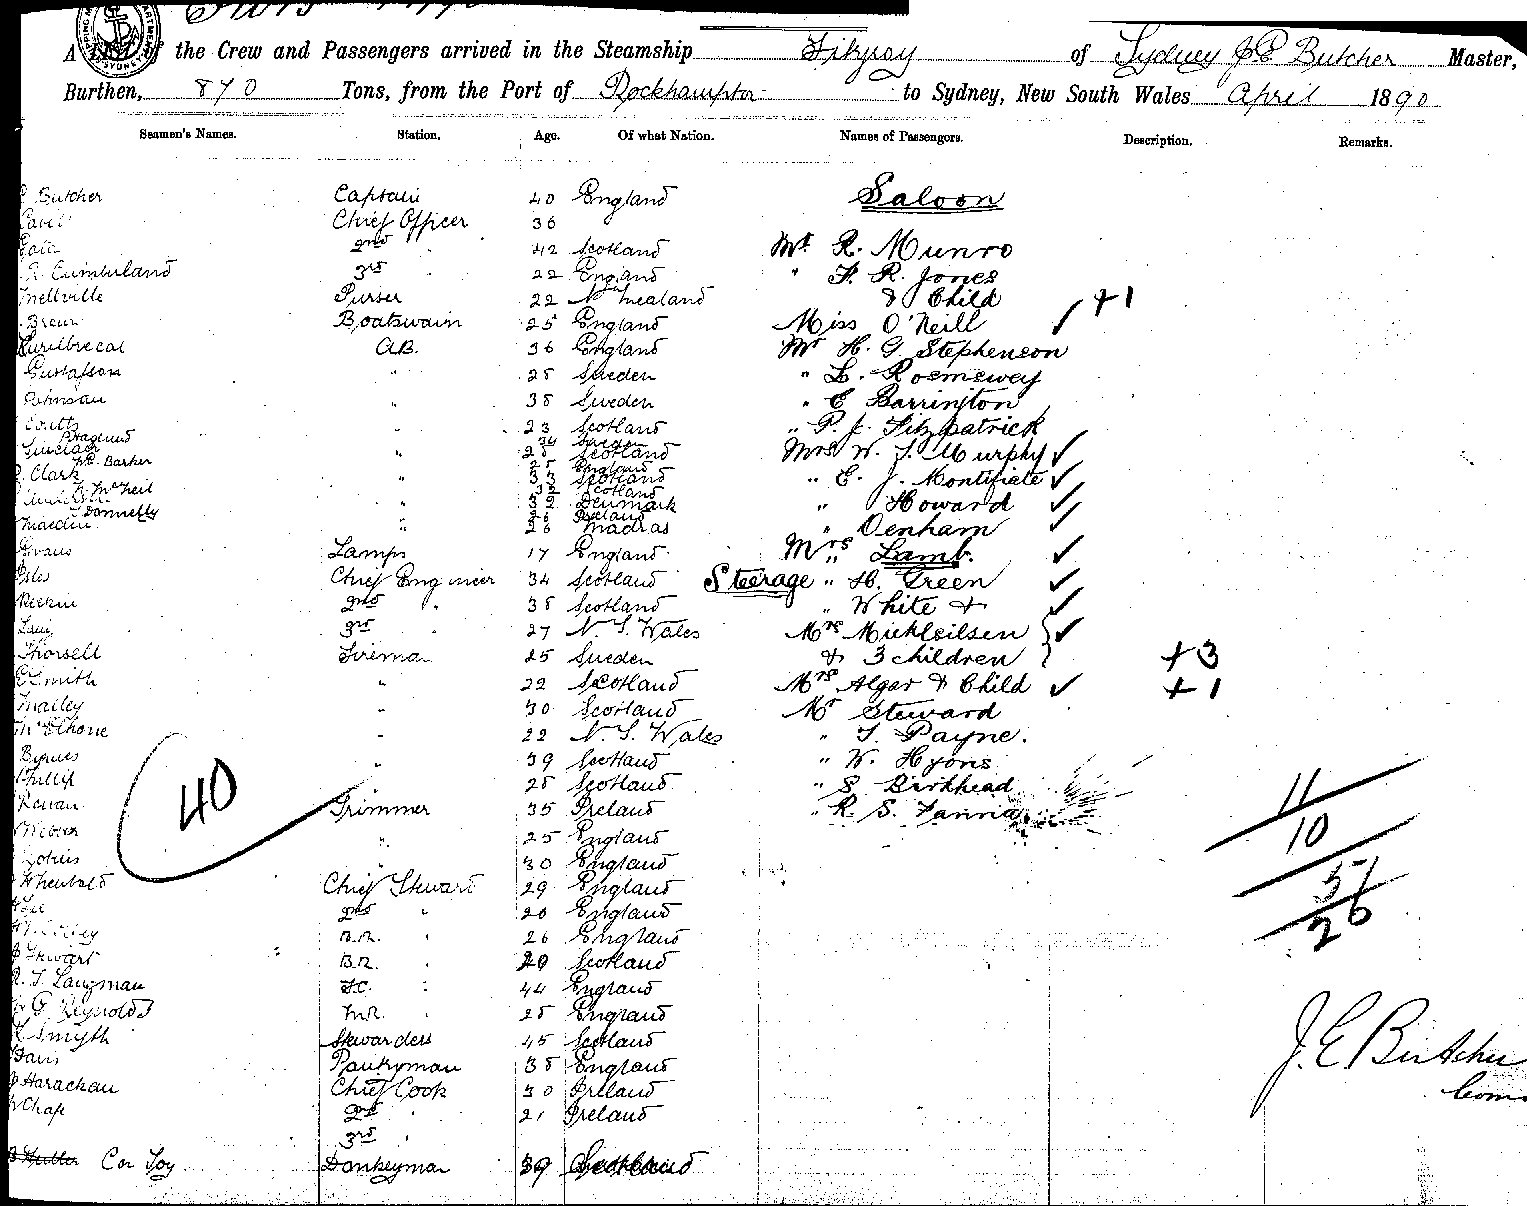 A List of the Crew and Passengers arrived in the Steamship Fitzroy of Sydney J.E. Butcher Master,
Burthen, 870 Tons, from the Port of Rockhampton to Sydney, New South Wales April 1890
Seamen's Names. Station. Age. Of what Nation. Names of Passengers. Description. Remarks.
Butcher Captain 40 England Saloon
Chief Officer 36
2nd 42 Scotland Mr R. Munro
Cumberland 3rd " 22 England " F. R. Jones
Mellville Purser 22 N Zealand & Child +1
Boatswain 25 England Miss O'Neill
A.B. 36 England Mr H. G Stephenson
Gustafson " 25 Sweden "
" 38 Sweden " E Barrington
Coutts " 23 Scotland " P. J. Fitzpatrick
34 Sweden
Sinclair " 28 Scotland Mrs W. J. Murphy
Barker 25 England
Clark " 33 Scotland " E. J. Montifiate
McNeil 32 Scotland
" 32 Denmark " Howard
Donnelly 26 Ireland
" 26 Madras " Denham
Evans Lamps 17 England Mrs " Lamb.
Chief Engineer 34 Scotland Steerage " H. Green
2nd " 38 Scotland " White &
3rd " 27 N. S. Wales Mrs Mickleilsen
Thorsell Fireman 25 Sweden & 3 children +3
Smith " 22 Scotland Mrs Algar & Child +1
Mailey " 30 Scotland Mr Steward
McElhone " 22 N. S. Wales " T. Payne.
Byrnes " 39 Scotland " W. Hyons
Phillip 28 Scotland " S Birkhead
40 Trimmer 35 Ireland " R. S. Fanning 11
" 25 England 10
" 30 England
Chief Steward 29 England 51
Lee 2nd " 20 England 26
B.R. " 26 England
Stewart B.R. " 29 Scotland
R. T. Langman F.C. " 44 England
G. Reynolds M.R. " 25 England
Smyth Stewardess 45 Scotland
Davis Pantryman 38 England J. E Butcher
Harachan Chief Cook 30 Ireland Com
Chap 2nd " 21 Ireland
3rd "
Butler Con Toy Donkeyman 39 Scotland